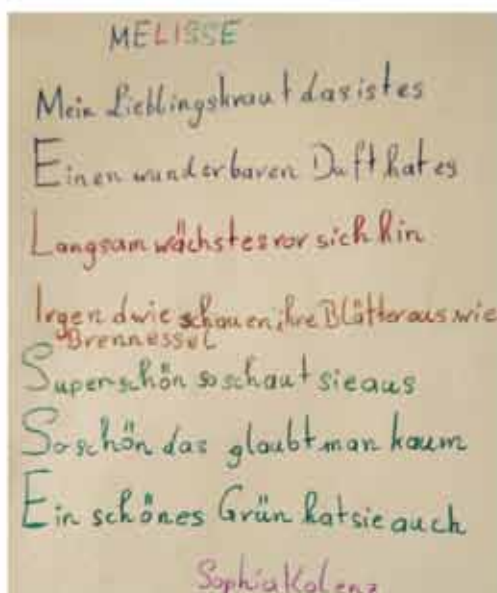 MELISSE
Mein Lieblingskraut das ist es
Einen wunderbaren Duft hat es
Langsam wächst es vor sich hin
Irgendwie schauen, ihre Blätter aus wie
Brennessel
Superschön so schaut sie aus
So schön das glaubt man kaum
Ein schönes Grün hat sie auch
Sophia Kolenz